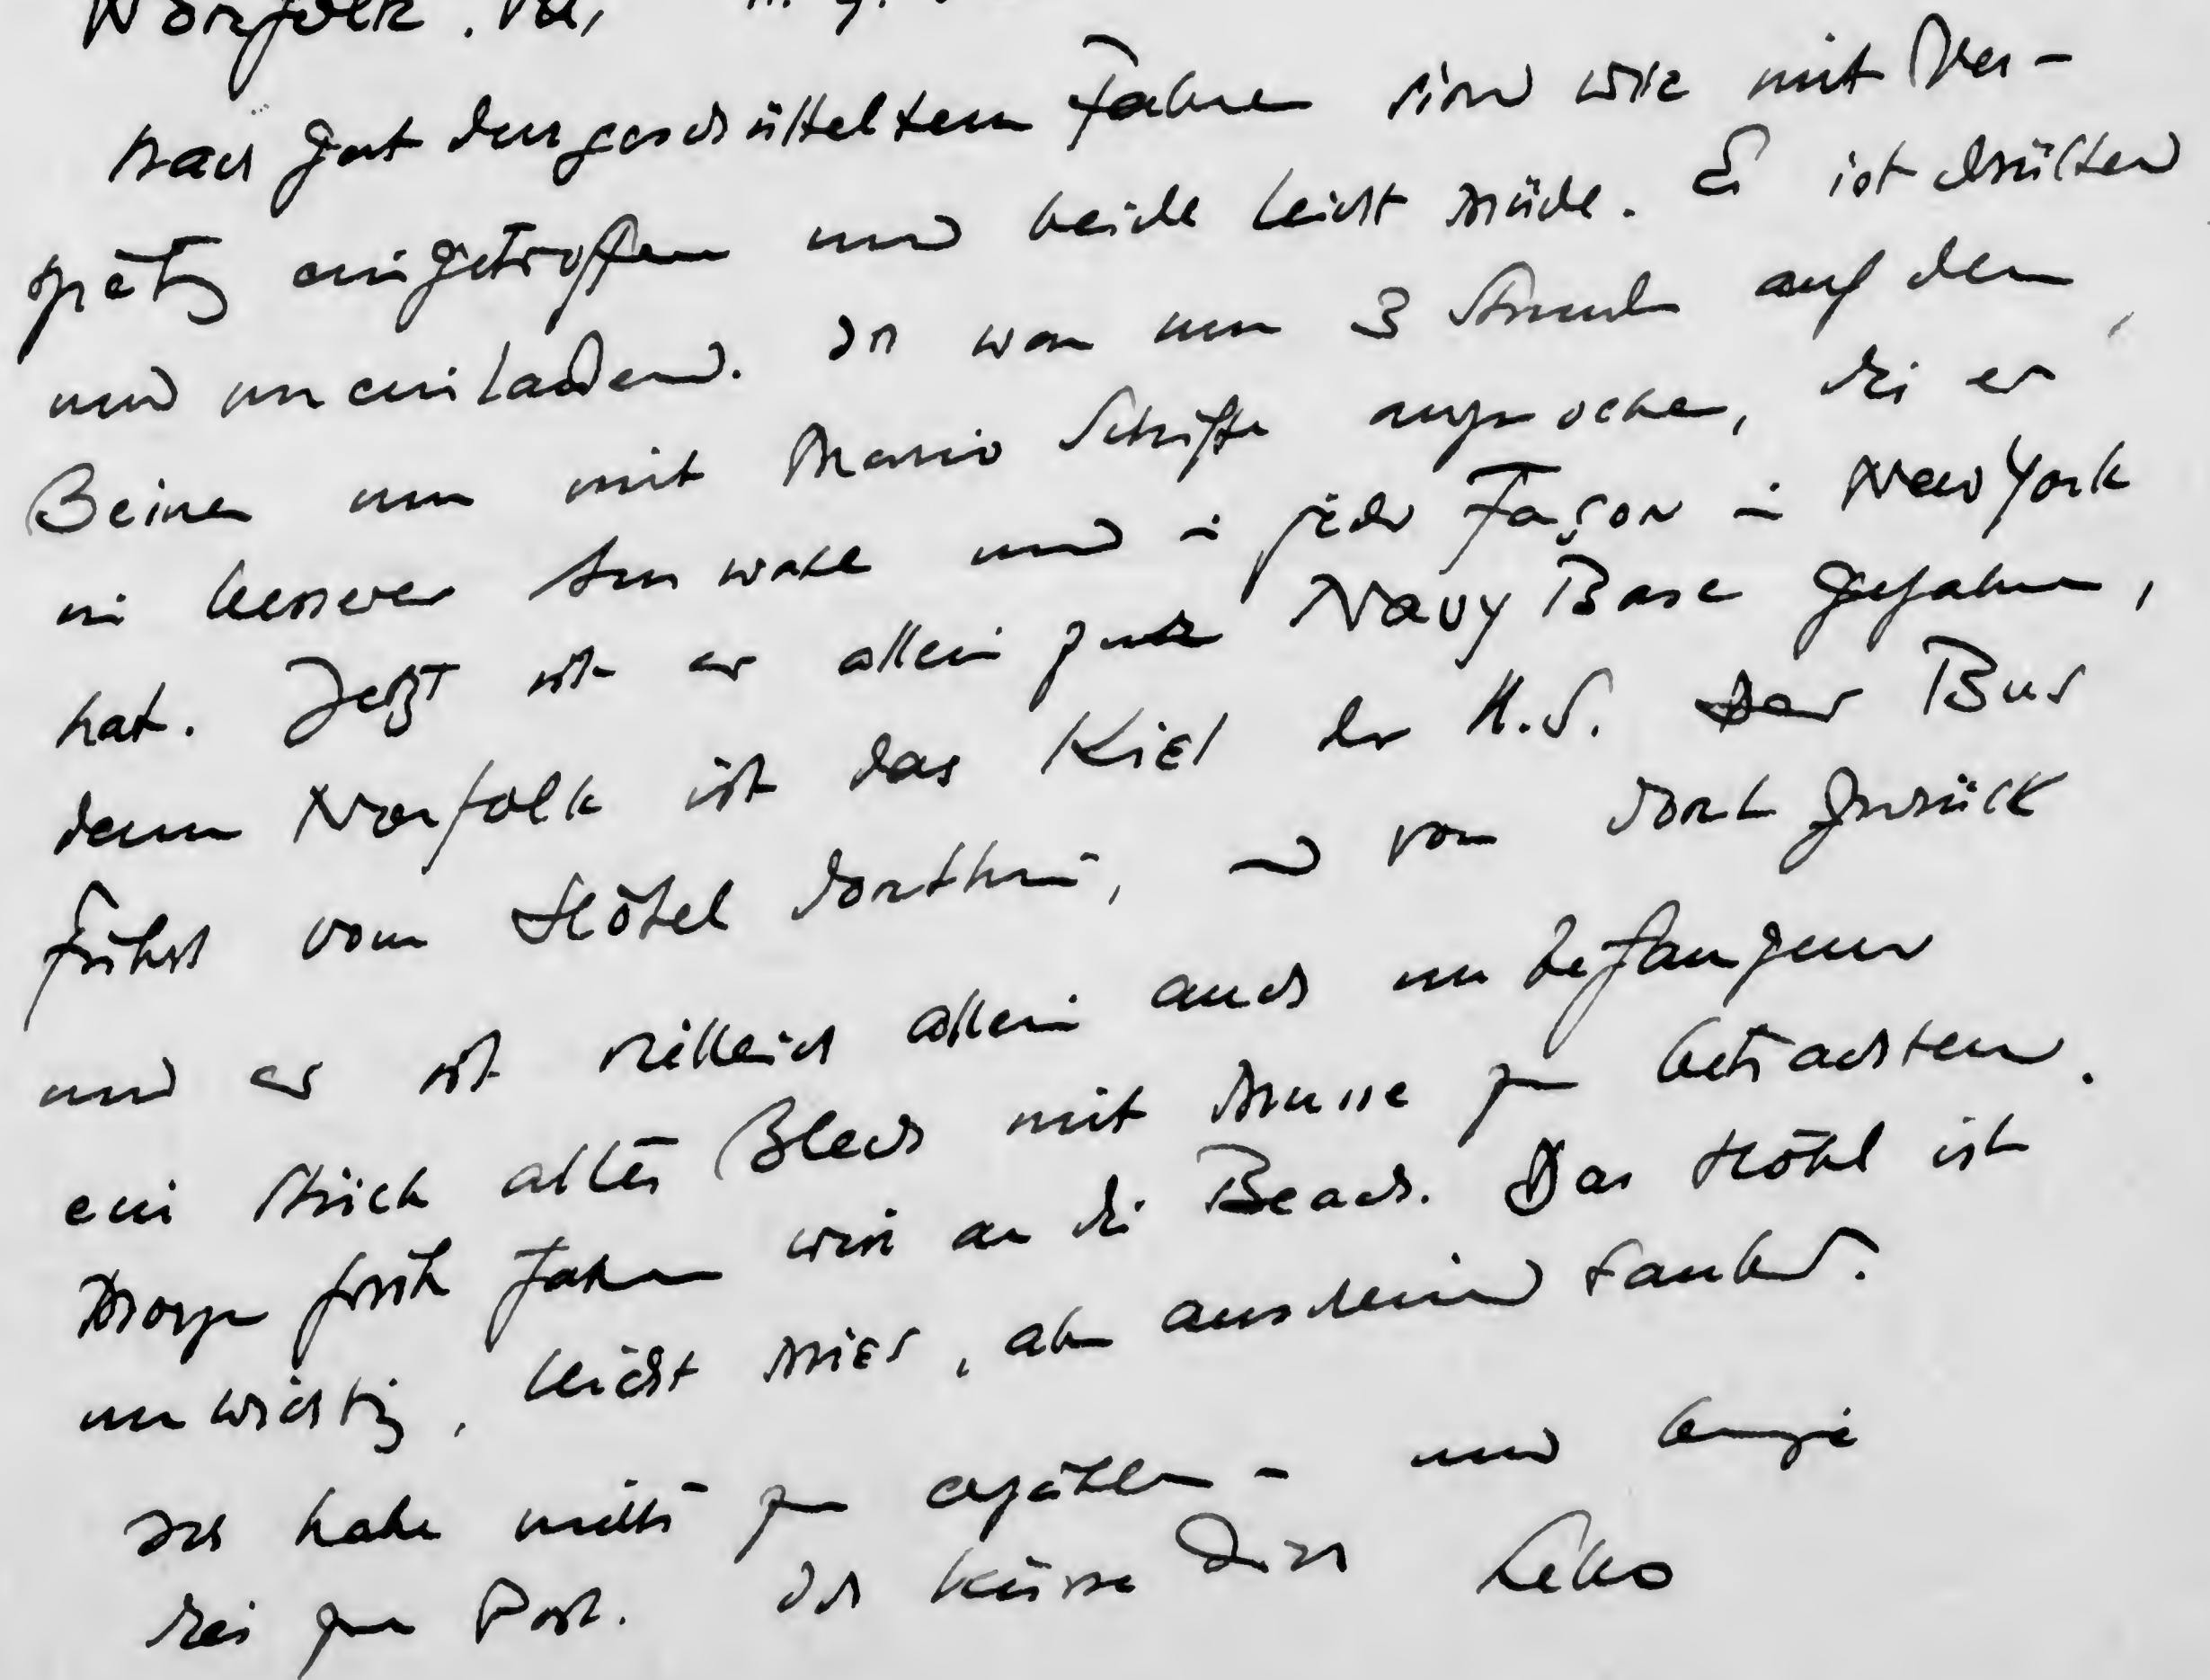 Norfolk. Va,
Nach gut durgeschütteltem Fahren sind wir mit Ver-
spätg eingetroffen und beide leicht müde. Es ist brütend
und uneinladend. Ich war nun 3 Stunden auf den
Beinen um mit Mario Schiffe anzusehen, die er
in besserer Auswahl und in jeder Façon in New York
hat. Jetzt ist er allein zur Navy Base gefahren,
denn Norfolk ist das Kiel der U.S. Der Bus
führt vom Hôtel dorthin, und von dort zurück
und er ist vielleich allein auch unbefangener
ein Stück altes Blech mit Musse zu betrachten.
Morgen früh fahren wir an die Beach. Das Hôtel ist
unwichtig, leicht mies, aber ausreichend sauber.
Ich habe nichts zu erzählen - und bringe
dies zur Post. Ich küsse Dich